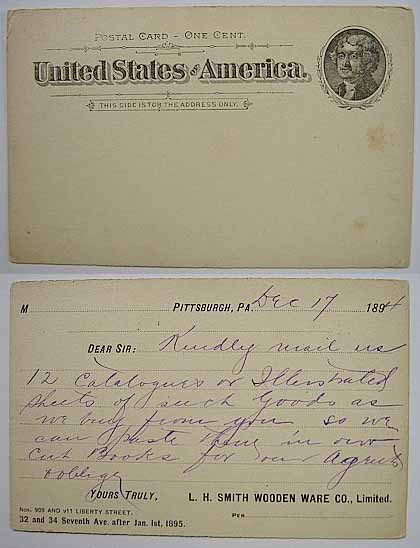 POSTAL CARD - ONE CENT.
United States of America.
THIS SIDE IS FOR THE ADDRESS ONLY.
M
PITTSBURGH, PA. Dec 17 1894
DEAR SIR: Kindly mail us
12 Catalogues or Illustrated
sheets of such Goods as
we buy from you so we
can paste them in our
Cut Books for our Agents
& oblige
YOURS TRULY, L. H. SMITH WOODEN WARE CO., Limited.
Nos. 909 AND 911 LIBERTY STREET.
32 and 34 Seventh Ave. after Jan. 1st, 1895. PER